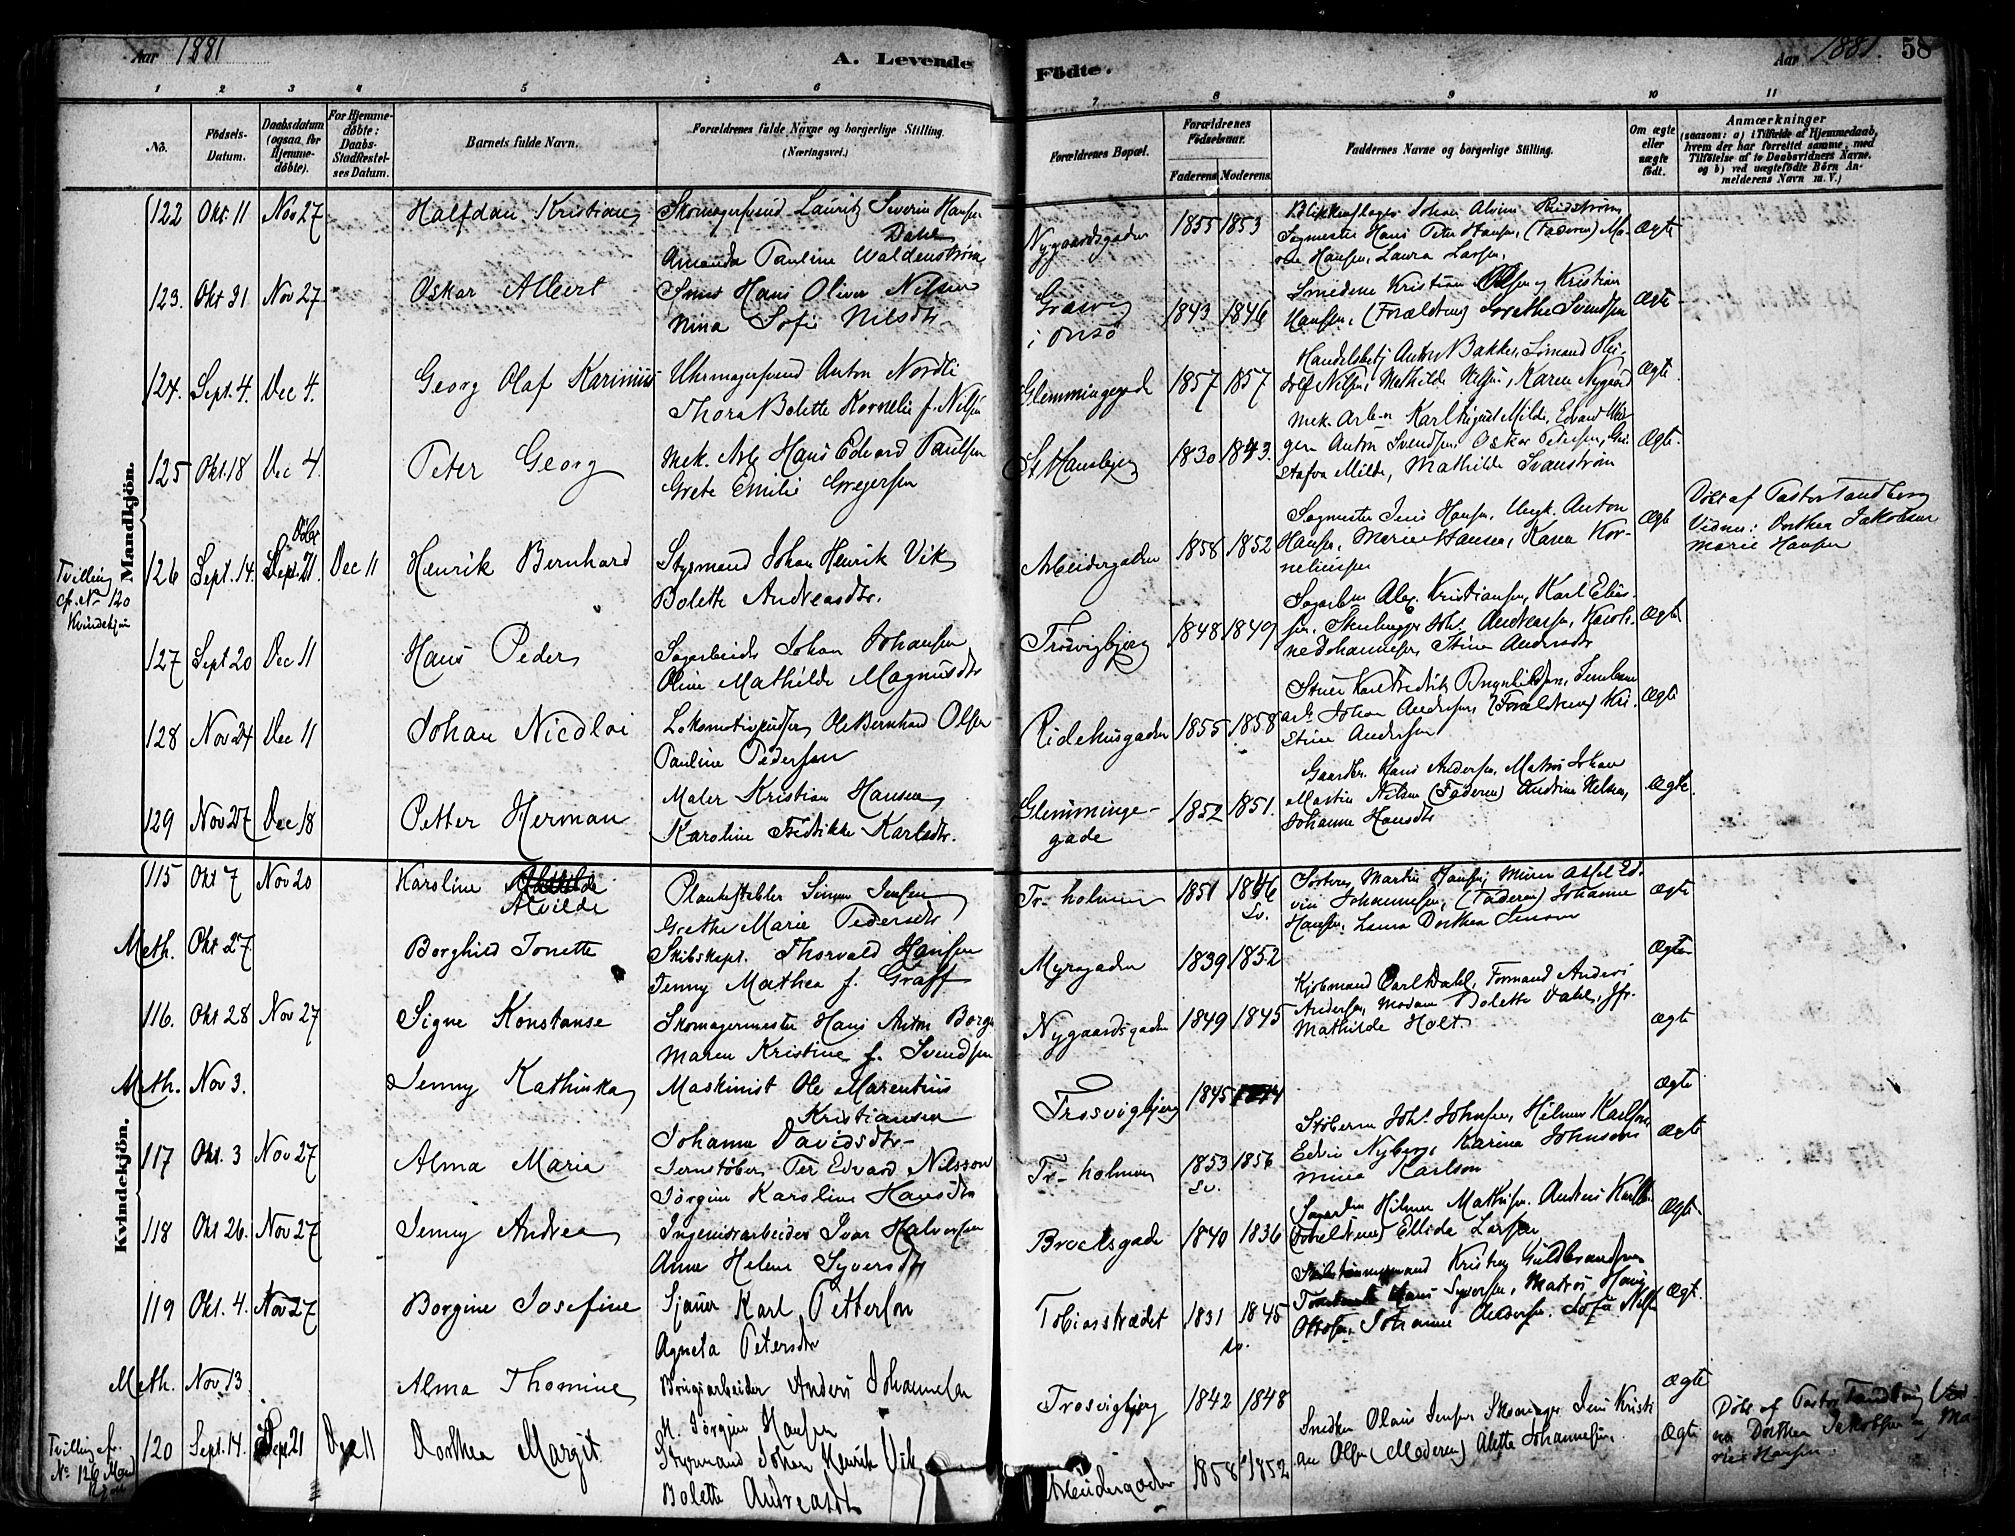 Aar 1881 A. Levende Födte. Aar 1881. 58
1 2 3 4 5 6 7 8 9 10 11
No.
Födsels-
Datum.
Daabsdatum
(ogsaa for
Hjemme-
døbte).
For Hjemme-
døbte:
Daabs-
Stadfæstel-
ses Datum.
Barnets fulde Navn.
Forældrenes fulde Navne og borgerlige Stilling.
(Næringsvei.)
Forældrenes Bopæl.
Forældrenes
Födselsaar.
Faderens. Moderens.
Faddernes Navne og borgerlige Stilling.
Om ægte
eller
uægte
födt.
Anmærkninger
(saasom: a) i Tilfælde af Hjemmedaab,
hvem der har forrettet samme, med
Tilföielse af to Daabsvidners Navne.
og b) ved uægtefödte Börn An-
melderens Navn m. V.)
Mandkjön.
122 Okt. 11 Nov 27 Halfdan Kristian Skomagersvend Lauritz Severin Hansen
Dahl
Amanda Pauline Waldenstrøm
Nygaardsgaden 1855 1853
Blikkenslager Johan Alvin
Sagmester Hans Peter Hansen, (Faderen)
Hansen, Laura Larsen,
Ægte
123. Okt 31 Nov 27 Oskar Albert Smed Hans Oliver Nilsen
Nina Sofie Nilsdtr.
i Onsö 1843 1846
Smedene Kristian Olsen og Kristian
Hansen, (Forældrene) Grethe Svendsen
Ægte
124. Sept. 4. Dec 4. Georg Olaf Karinius Uhrmagersvend Anton Nordli
Thora Bolette Kornelia f. Nilsen
Glemmingegad 1857 1857
Handelsbetj Anton Bakke, Sömand
Nilsen, Mathilde Nilsen, Karen Nygaard
Ægte.
125 Okt. 18 Dec 4. Peter Georg Mek. Arb. Hans Edvard Paulsen
Grete Emilie Gregersen
St Hansbjerg 1830 1843.
Mek. Arb. Karl August Milde, Edvard
Anton Svendsen, Oskar Petersen, Gu-
stafva Milde, Mathilde Svanström
Ægte.
Tvilling
cfr. No 120
Kvindekjön
126 Sept. 14. Döbt Sept. 21 Dec 11 Henrik Bernhard Styrmand Johan Henrik Vik
Bolette Andreasdtr.
Arbeidergaden 1858 1852
Sagmester Jens Hansen, Ungk. Anton
Hansen, Marie Hansen, Karen Kor-
neliussen
Ægte
Döbt af Pastor Tandberg
Vidner: Dorthea Jakobsen
Marie Hansen
127 Sept 20 Dec 11 Hans Peder Sagarbeider Johan Johansen
Oline Mathilde Magnusdtr
Trosvigbjerg 1848 1849
Sagarb. Alex. Kristiansen, Karl Elias-
sen, Stenhugger Joh. Andersen, Karoli-
ne Johannesen, Stina Andersdtr
Ægte
128 Nov 24 Dec 11 Johan Nicolai Lokomotivpudser Ole Bernhard Olsen
Pauline Pedersen
Ridehusgaden 1855 1858
Karl Fredrik Brynhildsen, Jernbane
arb. Johan Andersen, (Forældrene) Kri-
stine Andersen
Ægte
129 Nov 27 Dec 18 Petter Herman Maler Kristian Hansen
Karoline Fredrikke Karlsdtr.
Glemminge-
gade
1852 1851.
Gaardbr. Hans Andersen, Matros Johan
Martin Nilsen (Faderen) Andrine Nilsen,
Johanne Hansdtr
Ægte.
Kvindekjön.
115 Okt 7 Nov 20 Karoline Mathilde
Alvilde
Plankestabler Simon Jensen
Grethe Marie Pedersdtr
Tr-holmen 1851 1846
Sv.
Martin Hansen, Murer Adolf Ed-
vin Johannesen, (Faderen) Johanne
Hansen, Laura Dorthea Simonsen
Ægte
Meth. Okt 27 Borghild Tonette Skibskapt. Thorvald Hansen
Jenny Mathea f. Graff
Myragaden 1839 1852 Ægte
116. Okt 28 Nov 27 Signe Konstanse Skomagermester Hans Anton Borge
Maren Kristine f. Svendsen
Nygaardsgaden 1849 1845
Kjöbmand Carl Dahl, Formand Anders
Andersen, Madam Bolette Dahl, Jfr.
Mathilde Holt
Ægte
Meth. Nov 3. Jenny Kathinka Maskinist Ole Marentius
Kristiansen
Johanne Davidsdtr-
Trosvigbjerg 1845 1844 Ægte
117 Okt. 3 Nov 27 Alma Maria Jernstöber Per Edvard Nilsson
Jörgine Karoline Hansdtr
Tr-holmen 1853 1856
Sv.
Stöberne Joh. Johnsen, Hilmer Karlsen,
Edvin Nyberg, Karina Johnson
Mina Karlson
Ægte
118 Okt 26. Nov 27 Jenny Andrea Ingeniörarbeider Ivar Halvorsen
Anne Helene Syversdtr
Brochsgade 1840 1836
Sagarbr. Hilmer Mathisen, Anders Karlsen
(Forældrene) Ellida Larsen
Ægte
119 Okt. 4. Nov 27 Borgine Josefine Sjauer Karl Petterson
Agneta Petersdtr
Tobiasstrædet 1831 1845
sv.
Kristen Guldbrandsen
Hans Syversen, Matros Hans
Ottosen, Johanne Andersen, Sofie Nilsen
Ægte.
Meth. Nov 13 Alma Thomine Brugsarbeider Anders Johannesen
M. Jörgine Hansen
Trosvigbjerg 1842 1848 Ægte
Tvilling cfr.
No. 126 Mand
kjön
120 Sept. 14. Sept 21 Dec 11 Dorthea Margit Styrmand Johan Henrik Vik
Bolette Andreasdtr
Arbeidergaden 1858 1852
Snedker Olaus Jensen Skomager Jens Kristi
an Olsen (Moderen) Alette Johannesen.
Ægte
Döbt af Pastor Tandberg Vid
ner Dorthea Jakobsen og Ma-
rie Hansen